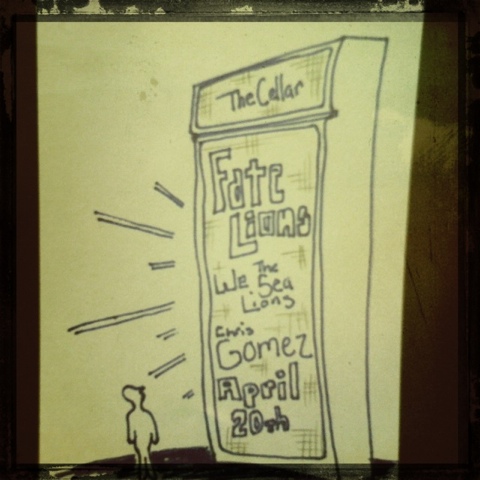 The Cellar
Fate
Lions
We The Sea
Lions
Chris
Gomez
April
20th